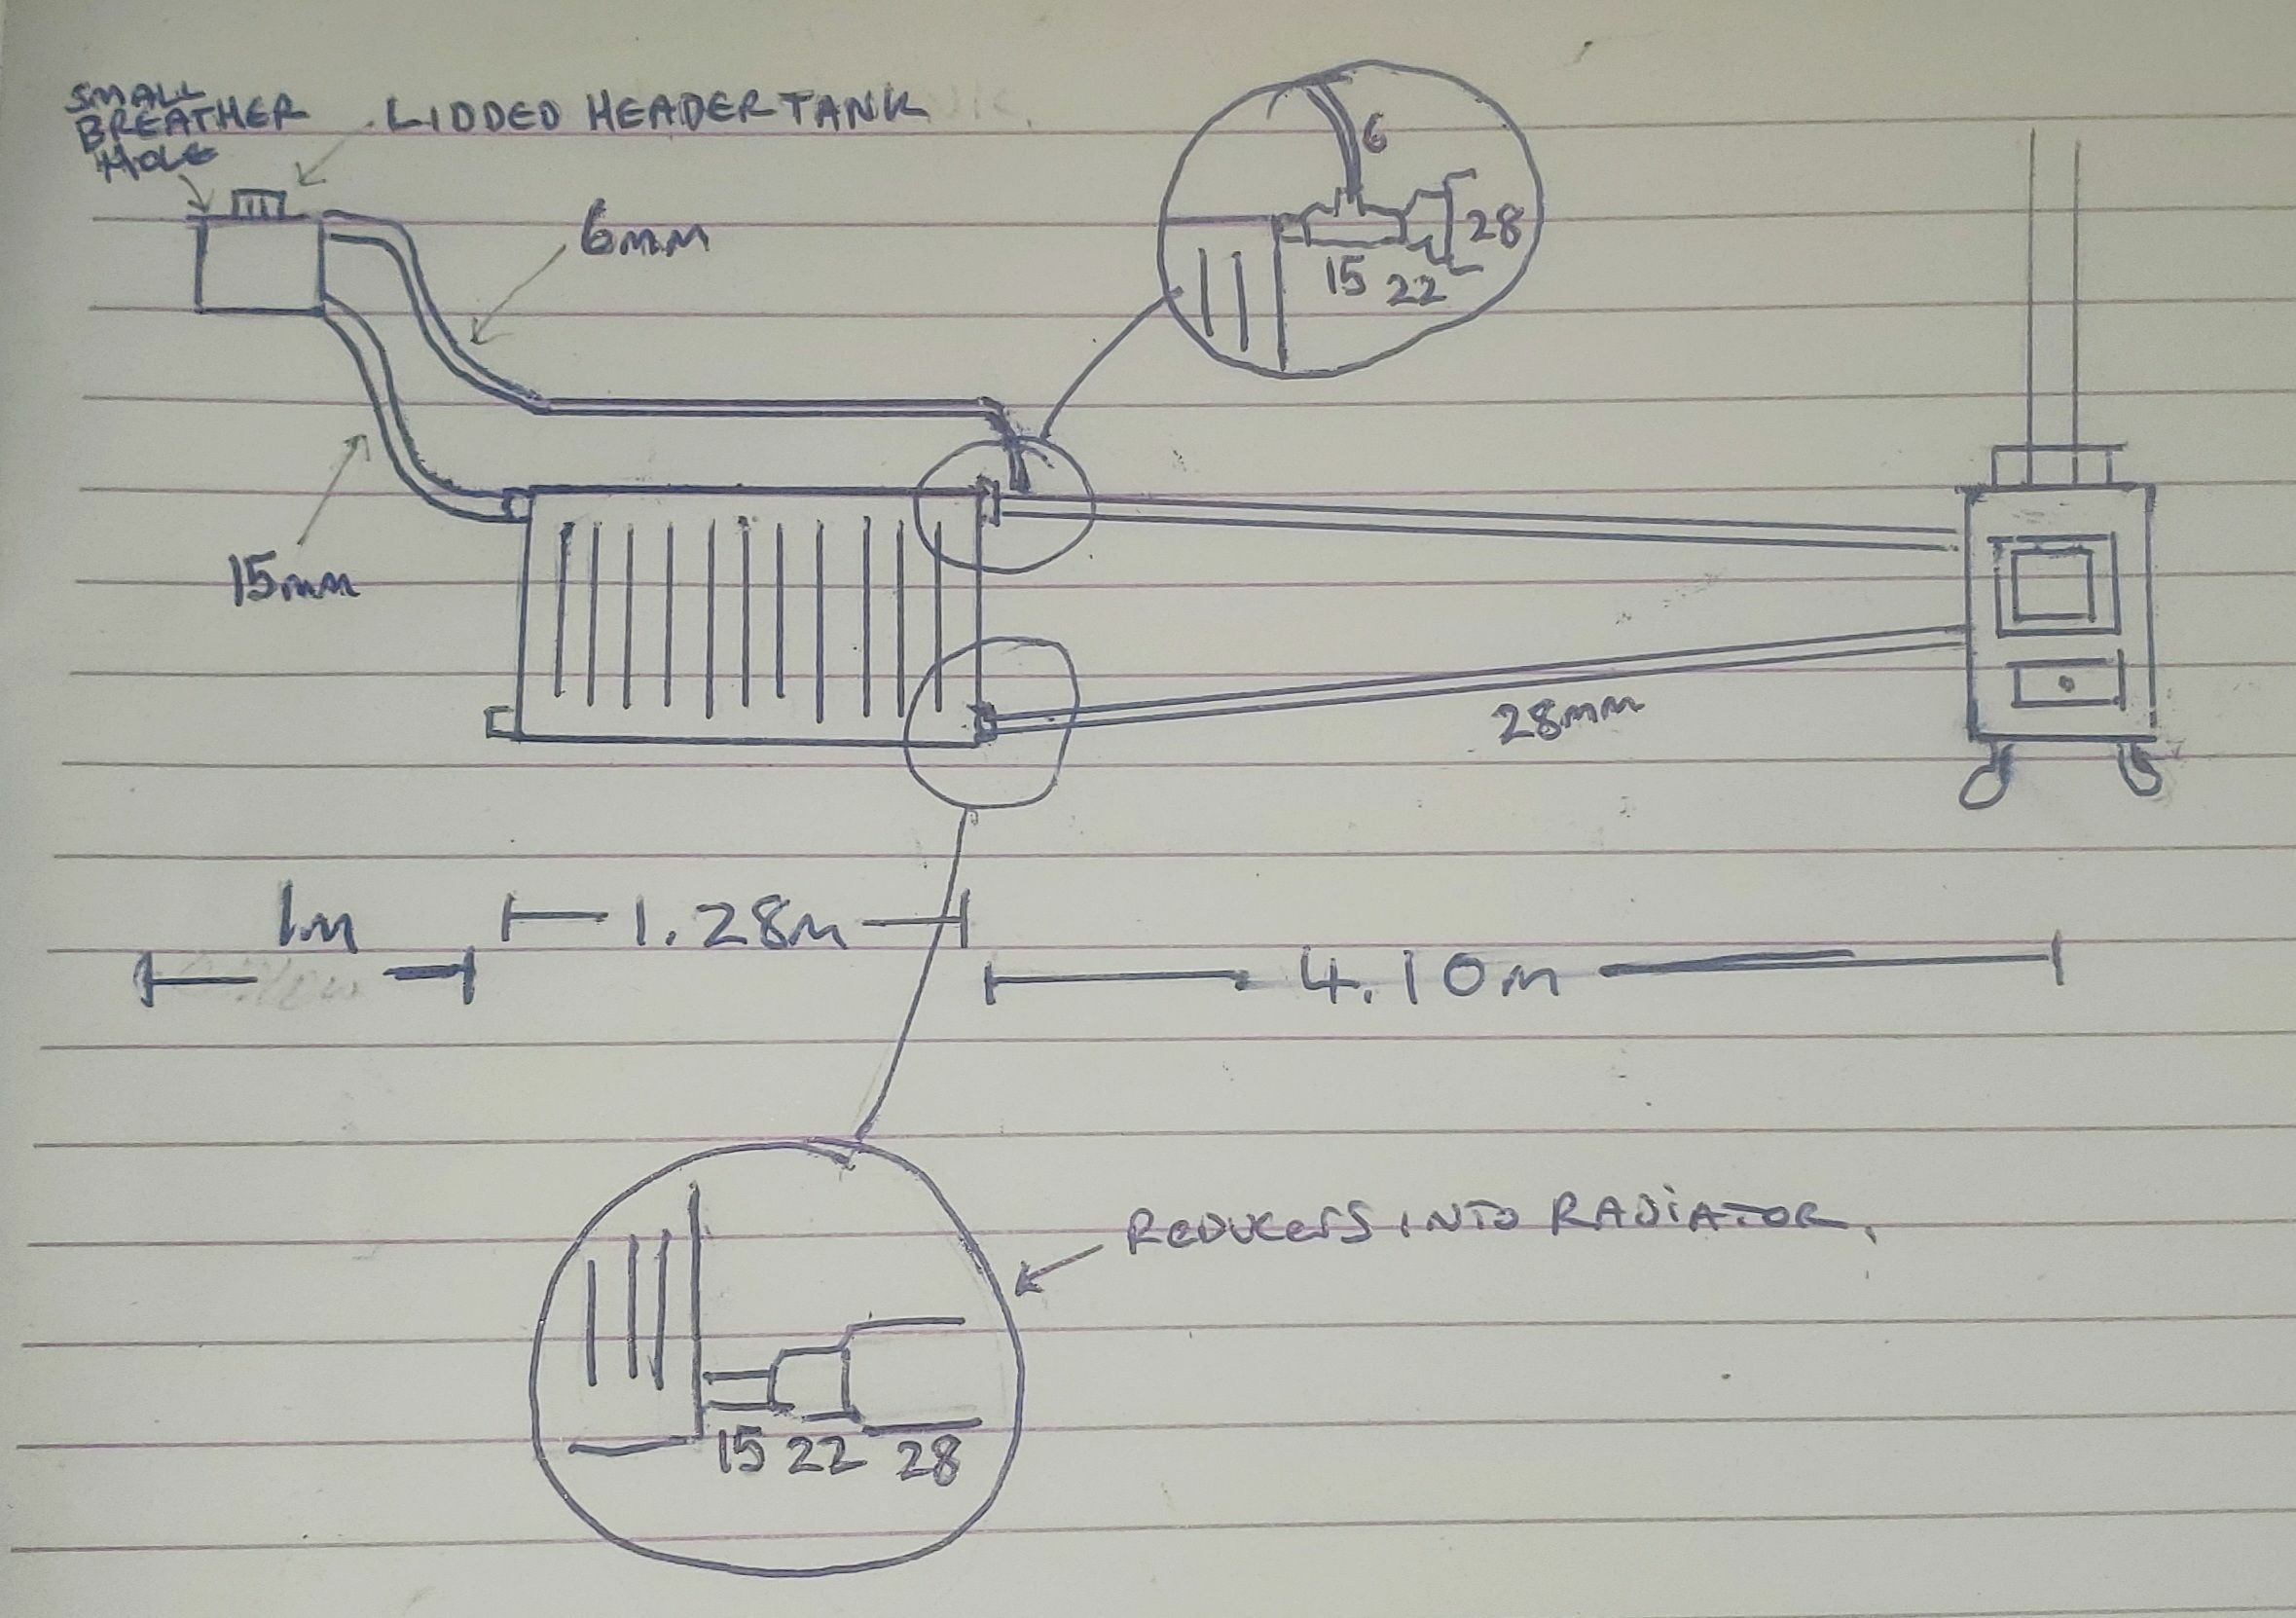 SMALL
BREATHER
HOLE
LIDDED HEADER TANK
6mm
6
28
15 22
15mm
28mm
1m
1.28m
4.10m
REDUCERS INTO RADIATOR.
15 22 28